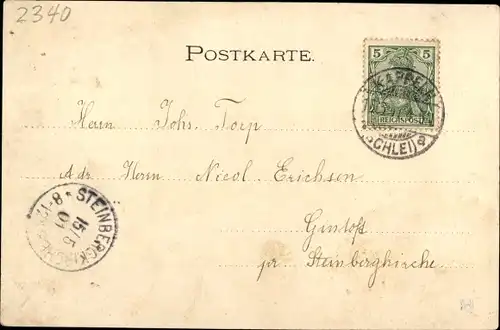 2340
POSTKARTE.
5 5
REICHSPOST
KAPPELN
(SCHLEI) a
Herrn Johs. Torp
Adr. Herrn Nicol. Erichsen
Gintoft
pr. Steinbergkirche
STEINBERGKIRCHE
15/5
01
8-12